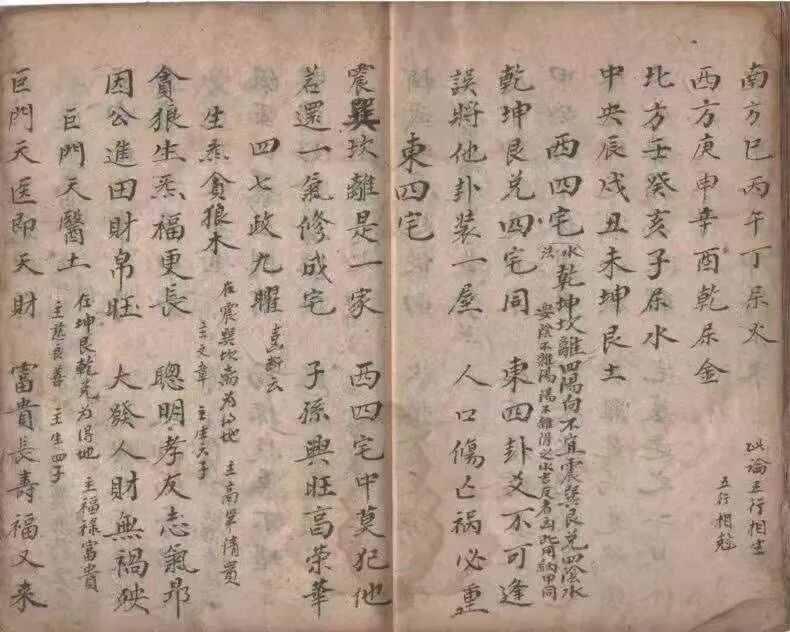 南方巳丙午丁屬火
西方庚申辛酉乾屬金
此論五行相生
五行相尅
北方壬癸亥子屬水
中央辰戌丑未坤艮土
西四宅
水法
乾坤坎離四陽向不宜震巽艮兌四陰水
陰不離陽陽不離陰之水
反者凶此用納甲同
乾坤艮兑四宅同 東四卦爻不可逢
誤將他卦装一屋 人口傷亡祸必重
東四宅
震巽坎離是一家 西四宅中莫犯他
若還一氣修成宅 子孫興旺高荣華
四七政九曜 断云
生炁貪狼木
在震巽坎離為得地 主高 清貴
主文章 主生五子
貪狼生炁福更長 聰明孝友志氣昂
因公進田財帛旺 大發人財無禍殃
巨門天醫土
在坤艮乾兑為得地 主福禄富貴
主慈良善 主生四子
巨門天医即天財 富貴長寿福又来